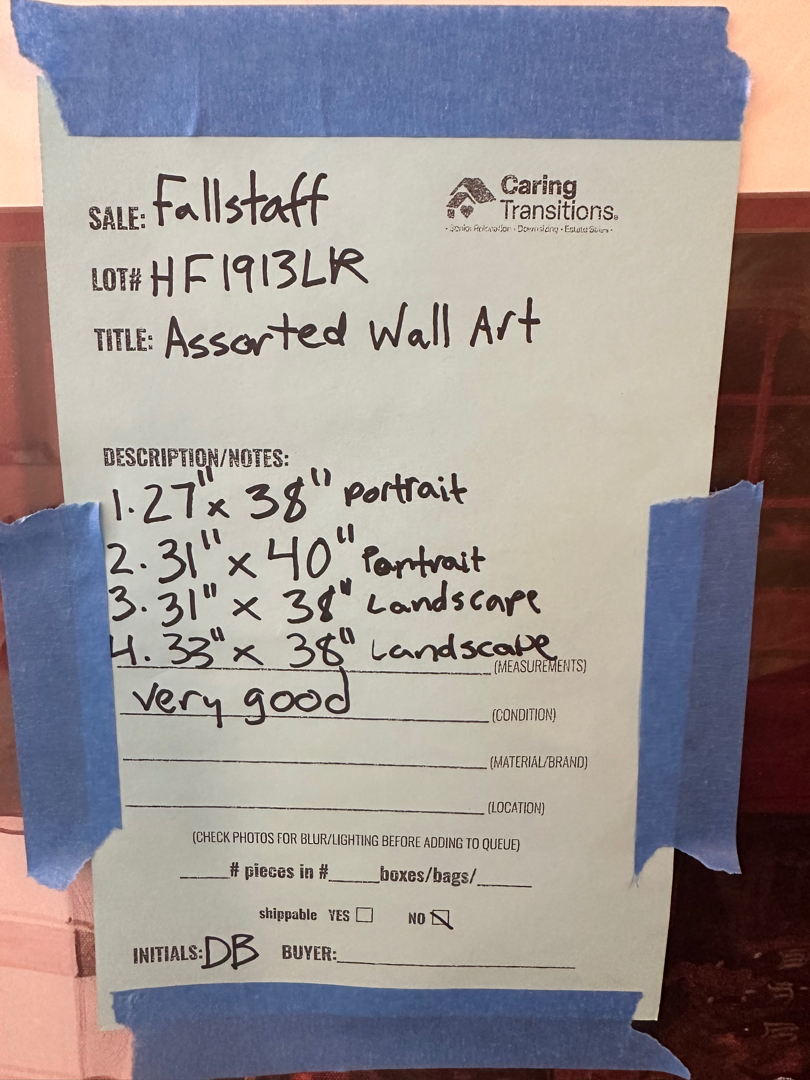 SALE: Fallstaff
Caring
Transitions®
• Senior Relocation • Downsizing • Estate Sales •
LOT# HF1913LR
TITLE: Assorted Wall Art
DESCRIPTION/NOTES:
1. 27" x 38" portrait
2. 31" x 40" Portrait
3. 31" x 38" Landscape
4. 33" x 38" Landscape
(MEASUREMENTS)
very good (CONDITION)
(MATERIAL/BRAND)
(LOCATION)
(CHECK PHOTOS FOR BLUR/LIGHTING BEFORE ADDING TO QUEUE)
_____# pieces in #_____boxes/bags/______
shippable YES ☐ NO ☒
INITIALS: DB BUYER: